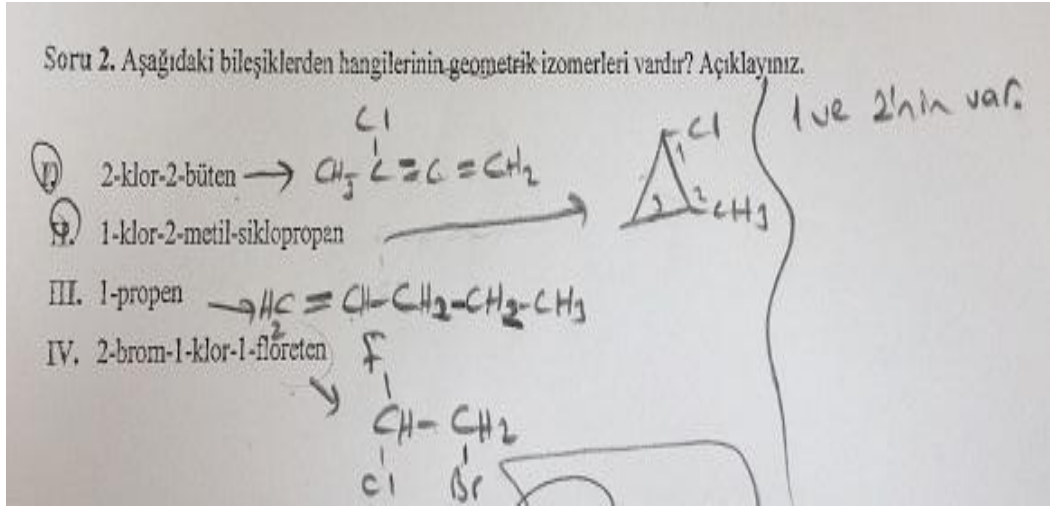 Soru 2. Aşağıdaki bileşiklerden hangilerinin geometrik izomerleri vardır? Açıklayınız.
1 ve 2'nin var.
Cl
I. 2-klor-2-büten → CH3 C=C=CH2
Cl
II. 1-klor-2-metil-siklopropan
1
3 2 CH3
III. 1-propen → H2C=CH-CH2-CH2-CH3
IV. 2-brom-1-klor-1-floreten
F
CH-CH2
Cl Br